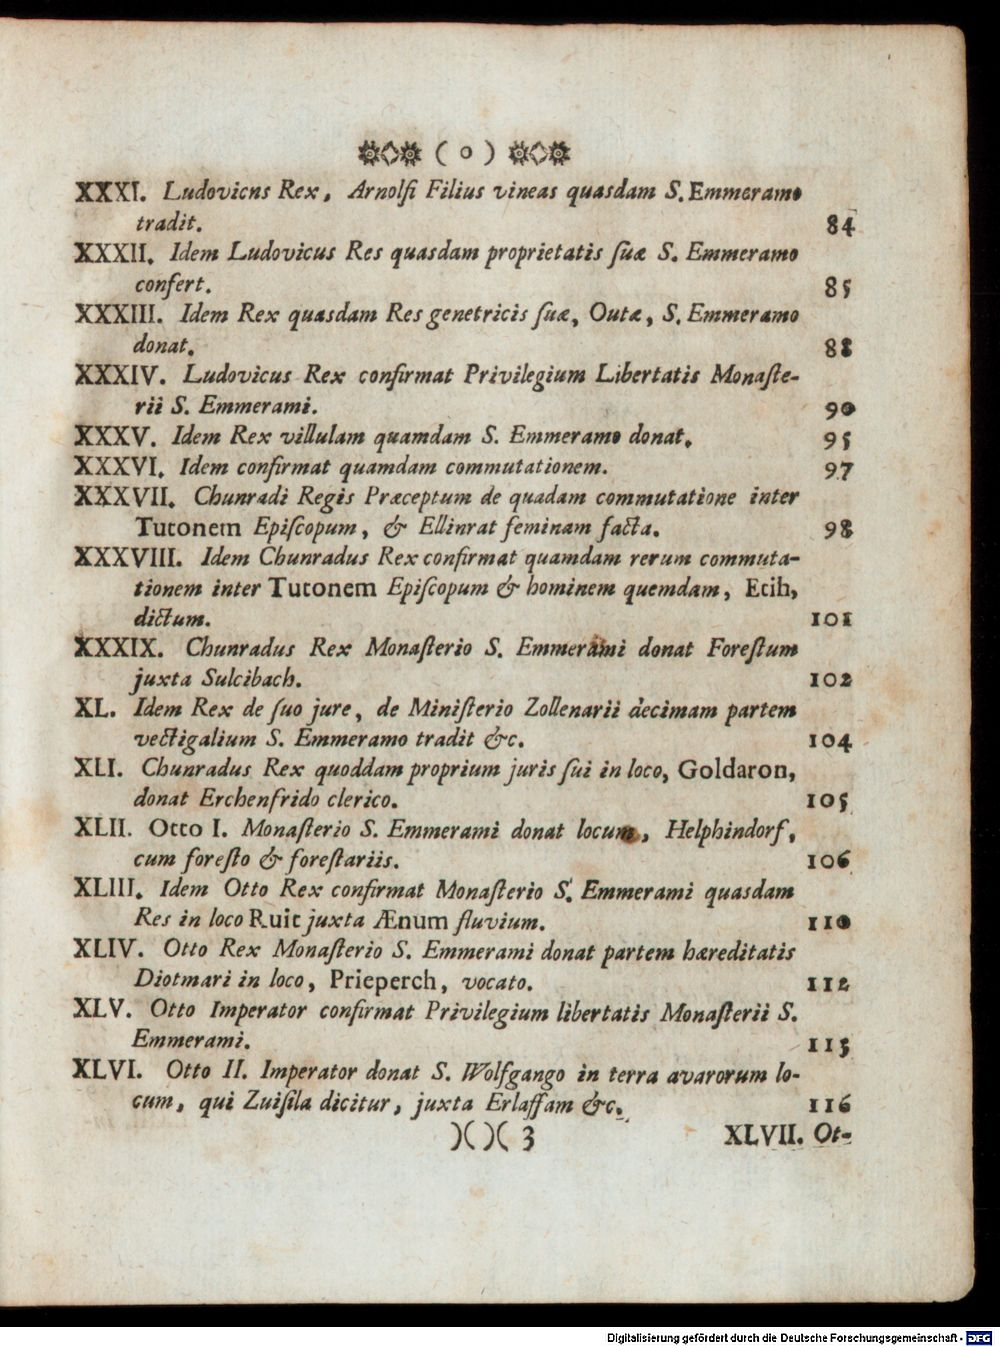 ( o )
XXXI. Ludovicns Rex, Arnolfi Filius vineas quasdam S. Emmeramo
tradit. 84
XXXII. Idem Ludovicus Res quasdam proprietatis ſuæ S. Emmeramo
confert. 85
XXXIII. Idem Rex quasdam Res genetricis ſuæ, Outæ, S. Emmeramo
donat. 88
XXXIV. Ludovicus Rex confirmat Privilegium Libertatis Monaſte-
rii S. Emmerami. 90
XXXV. Idem Rex villulam quamdam S. Emmeramo donat. 95
XXXVI. Idem confirmat quamdam commutationem. 97
XXXVII. Chunradi Regis Præceptum de quadam commutatione inter
Tutonem Epiſcopum, & Ellinrat feminam facta. 98
XXXVIII. Idem Chunradus Rex confirmat quamdam rerum commuta-
tionem inter Tutonem Epiſcopum & hominem quemdam, Etih,
dictum. 101
XXXIX. Chunradus Rex Monaſterio S. Emmerami donat Foreſtum
juxta Sulcibach. 102
XL. Idem Rex de ſuo jure, de Miniſterio Zollenarii decimam partem
vectigalium S. Emmeramo tradit &c. 104
XLI. Chunradus Rex quoddam proprium juris ſui in loco, Goldaron,
donat Erchenfrido clerico. 105
XLII. Otto I. Monaſterio S. Emmerami donat locum, Helphindorf,
cum foreſto & foreſtariis. 106
XLIII. Idem Otto Rex confirmat Monaſterio S. Emmerami quasdam
Res in loco Ruit juxta Ænum fluvium. 110
XLIV. Otto Rex Monaſterio S. Emmerami donat partem hæreditatis
Diotmari in loco, Prieperch, vocato. 112
XLV. Otto Imperator confirmat Privilegium libertatis Monaſterii S.
Emmerami. 115
XLVI. Otto II. Imperator donat S. Wolfgango in terra avarorum lo-
cum, qui Zuiſila dicitur, juxta Erlaffam &c. 116
)( )( 3 XLVII. Ot-
Digitalisierung gefördert durch die Deutsche Forschungsgemeinschaft - DFG